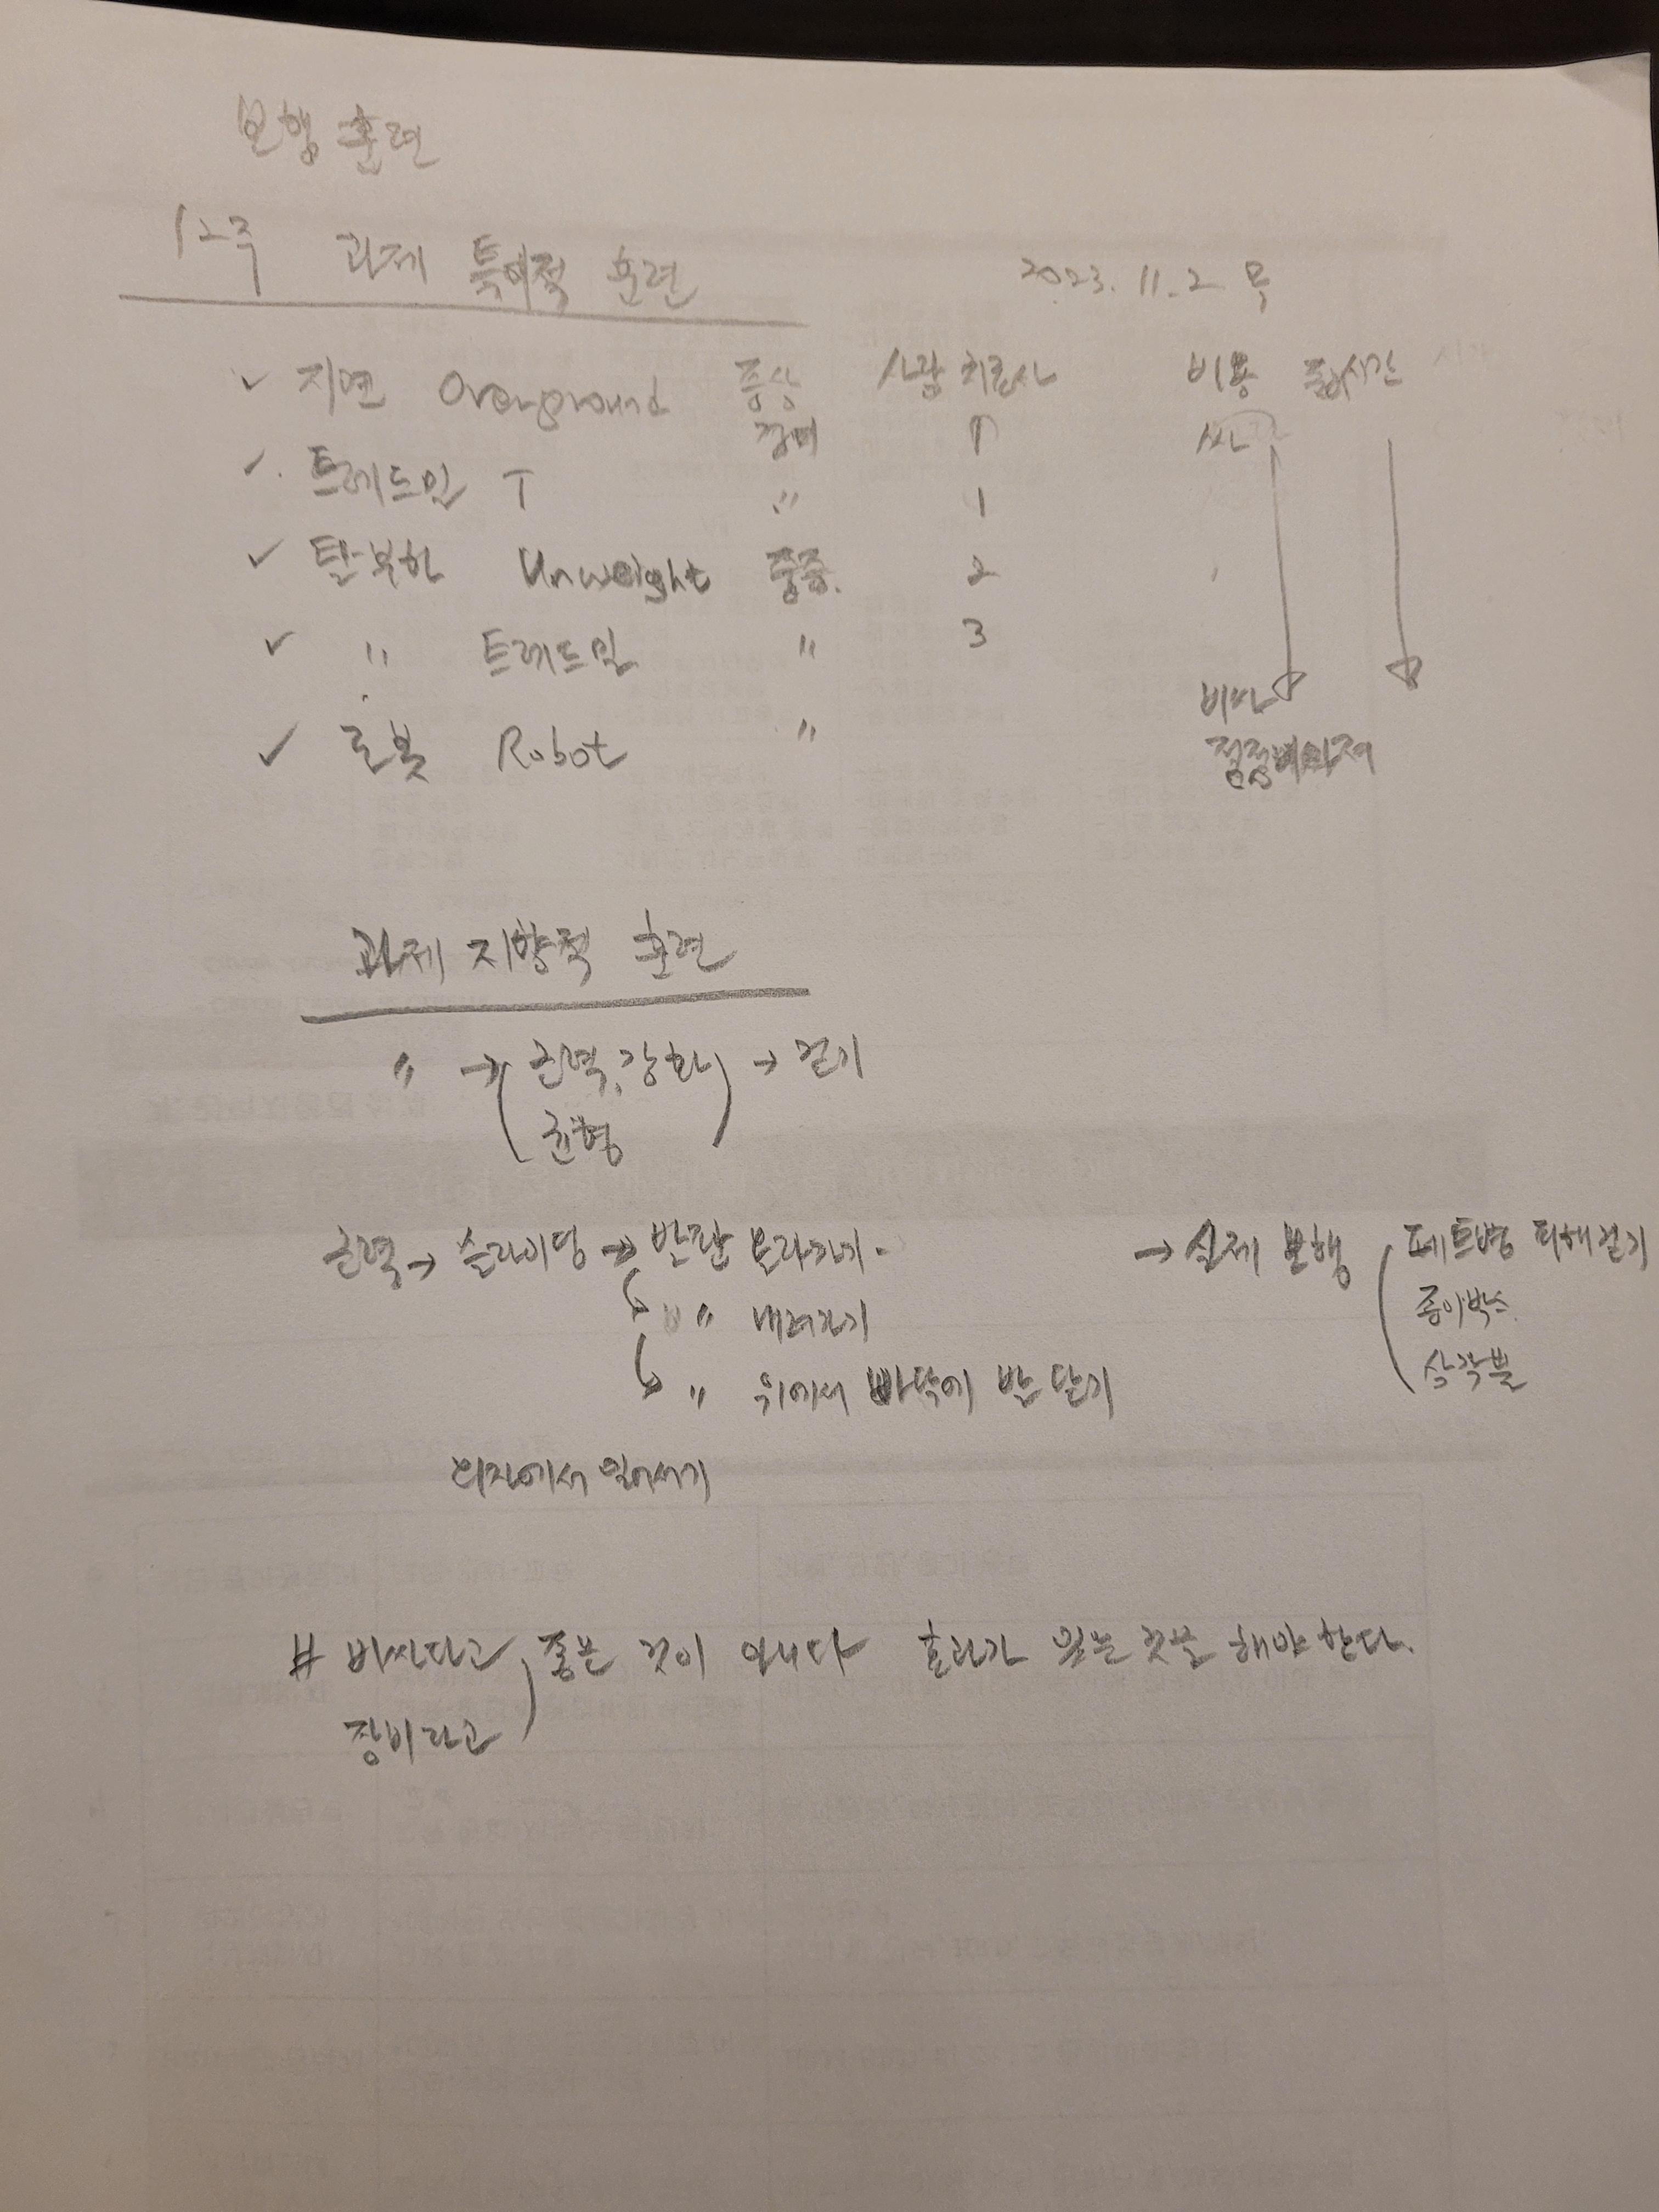 보행 훈련
12주 과제 특이적 훈련 2023. 11. 2 목
✓ 지면 Overground 증상 사람 치료사 비용 시간
경미 1 싼
✓ 트레드밀 T 〃 1
✓ 탈부하 Unweight 중증. 2
✓ 〃 트레드밀 〃 3
비싼
✓ 로봇 Robot 〃
점점 비싸져
과제 지향적 훈련
〃 → (근력, 강화) → 걷기
균형
근력 → 슬라이딩 → 발판 올라가기. → 실제 보행 ( 페트병 피해 걷기
〃 내려가기 종이박스
〃 위에서 바닥에 발 닿기 삼각뿔
의자에서 일어서기
# 비싸다고 좋은 것이 아니다 효과가 있는 것을 해야 한다.
장비라고